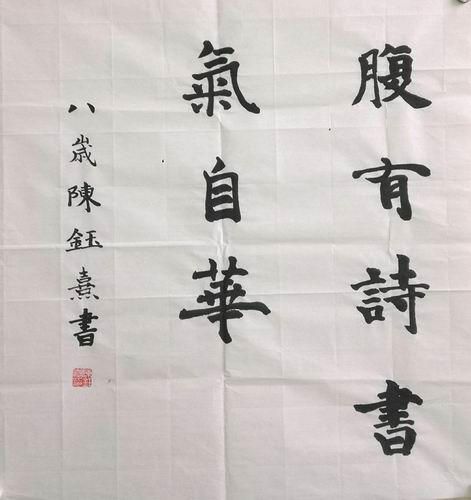 腹有詩書
氣自華
八歲陳鈺熹書